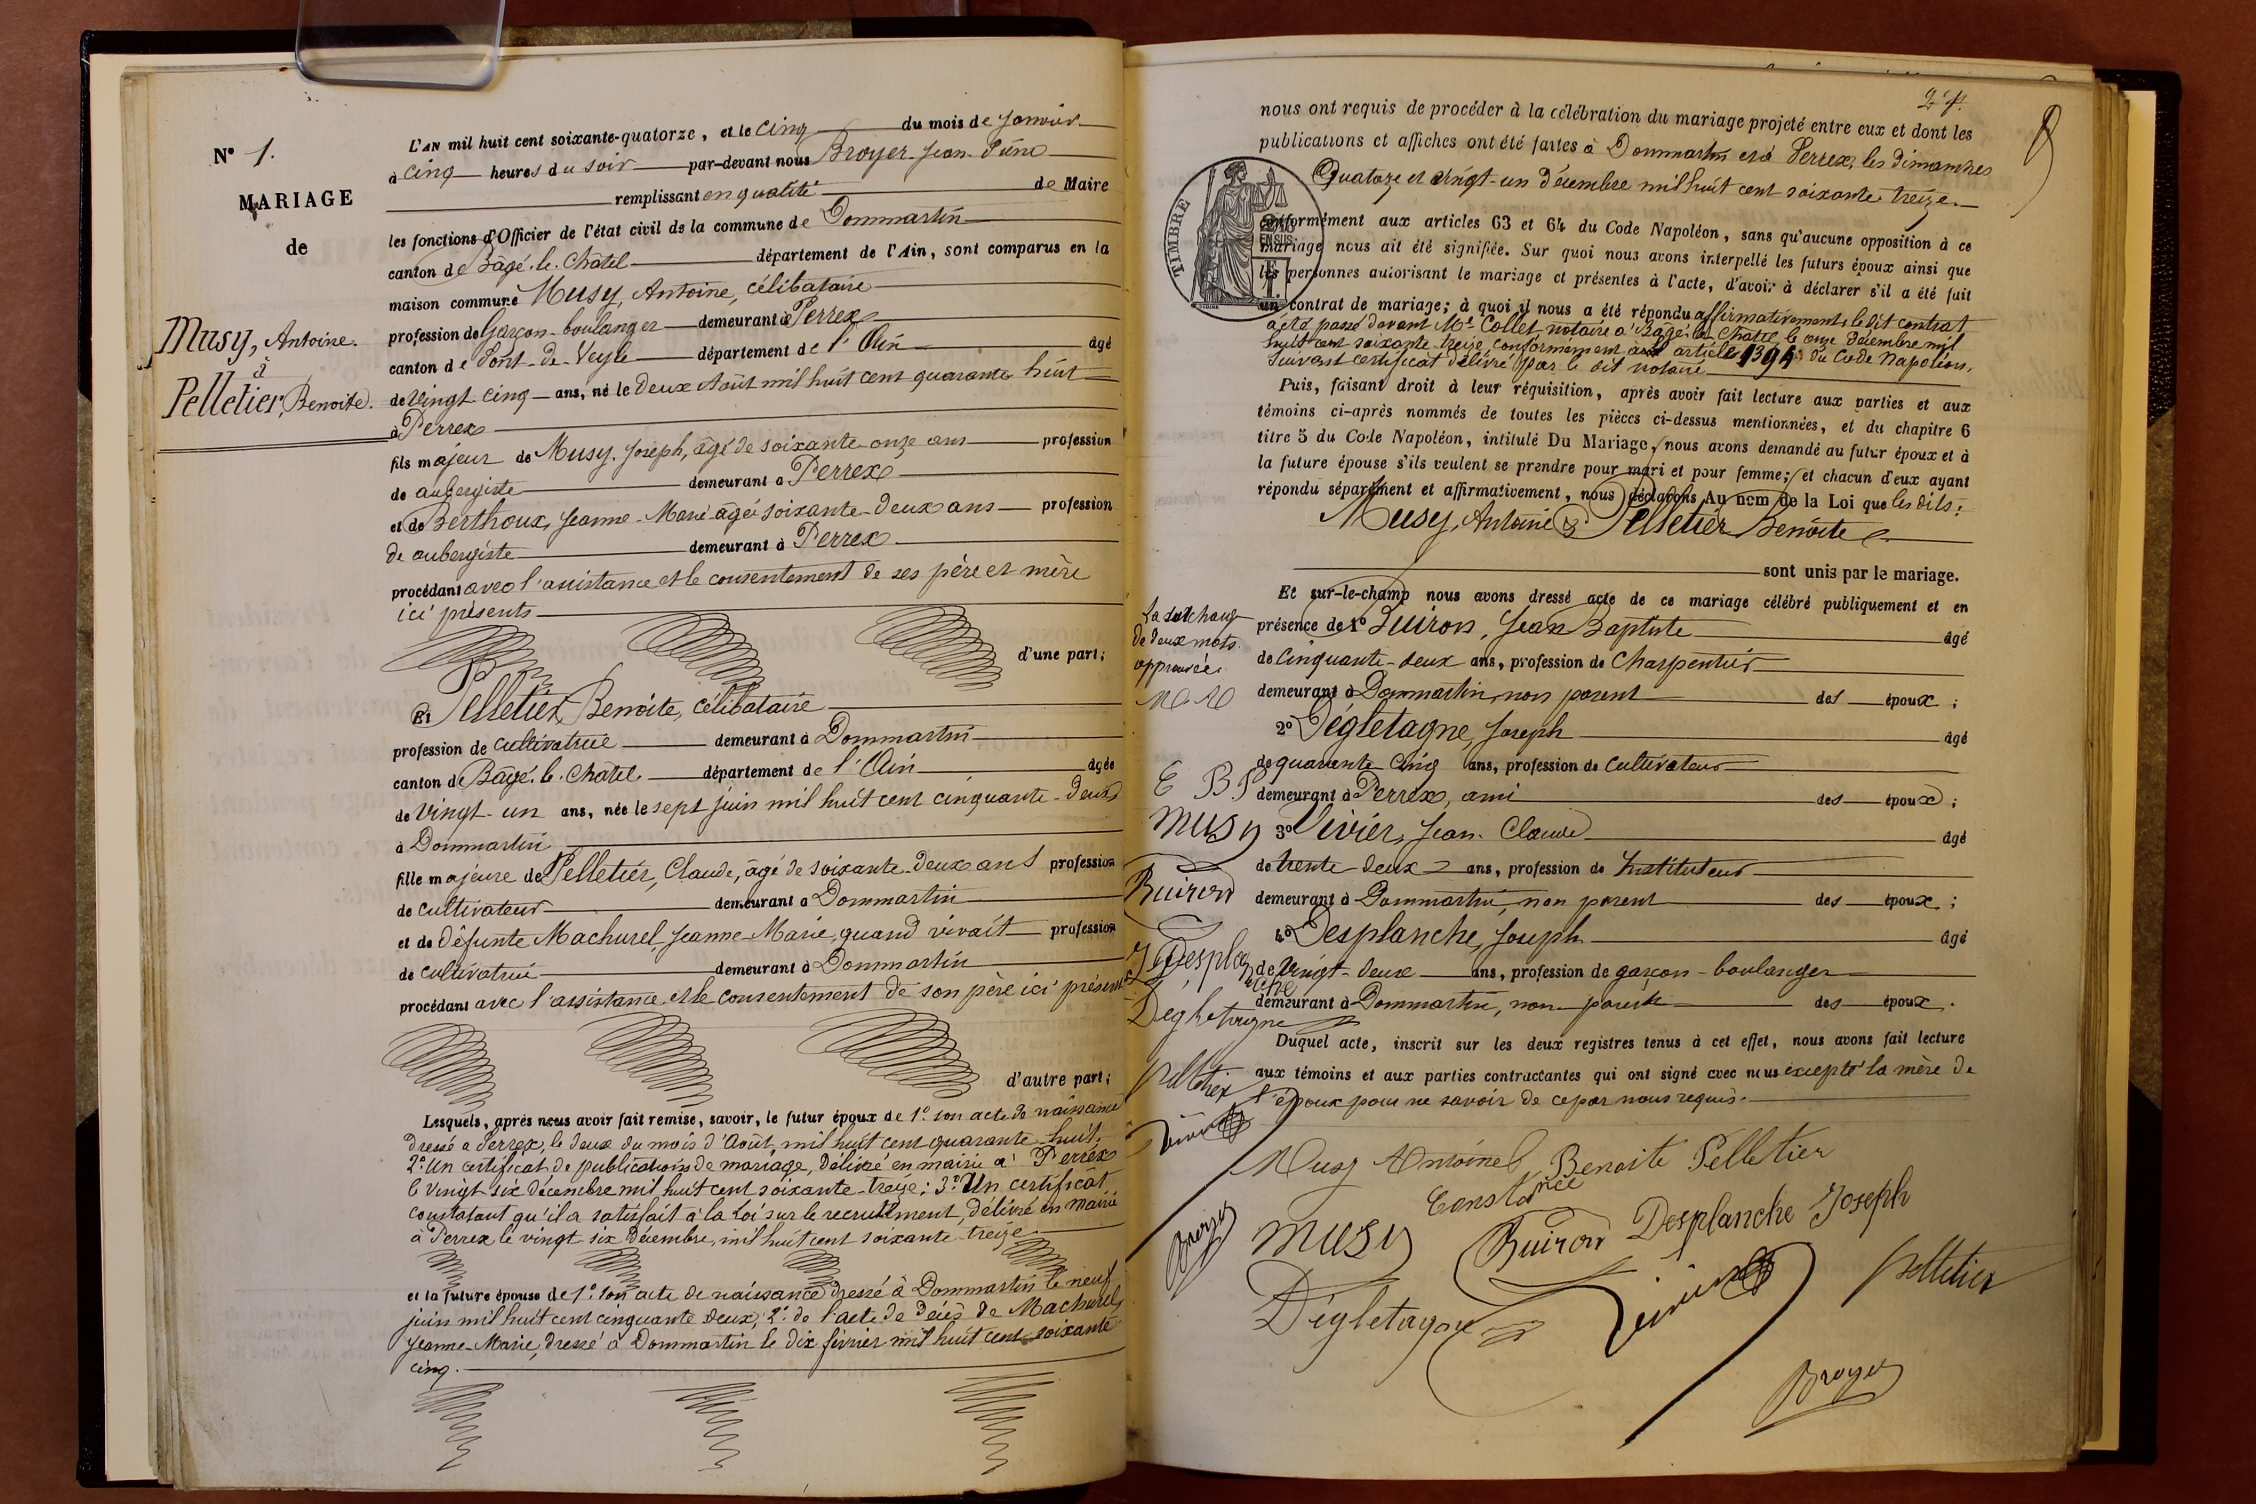 N° 1.
MARIAGE
de
Musy, Antoine.
à
Pelletier, Benoite.
L'AN mil huit cent soixante-quatorze, et le Cinq du mois de Janvier
à cinq heures du soir par-devant nous Broyer Jean
remplissant en qualité de Maire
les fonctions d'Officier de l'état civil de la commune de Dommartin
canton de Bâgé-le-Châtel département de l'Ain, sont comparus en la
maison commune Musy, Antoine, célibataire
profession de Garçon-boulanger demeurant à Perrex
canton de Pont-de-Veyle département de l'Ain âgé
de Vingt cinq ans, né le Deux Août mil huit cent quarante huit
à Perrex
fils majeur de Musy, Joseph, âgé de soixante onze ans profession
de aubergiste demeurant à Perrex
et de Berthoux, Jeanne-Marie âgée soixante-deux ans profession
de aubergiste demeurant à Perrex
procédant avec l'assistance et le consentement de ses père et mère
ici présents
d'une part;
Et Pelletier, Benoite, célibataire
profession de cultivatrice demeurant à Dommartin
canton de Bâgé-le-Châtel département de l'Ain âgée
de Vingt-un ans, née le sept juin mil huit cent cinquante-deux
à Dommartin
fille majeure de Pelletier, Claude, âgé de soixante-deux ans profession
de cultivateur demeurant à Dommartin
et de défunte Machurel, Jeanne-Marie, quand vivait profession
de cultivatrice demeurant à Dommartin
procédant avec l'assistance et le consentement de son père ici présent
d'autre part;
Lesquels, après nous avoir fait remise, savoir, le futur époux de 1° son acte de naissance
dressé à Perrex, le deux du mois d'Août mil huit cent quarante-huit;
2° Un certificat de publications de mariage, délivré en mairie à Perrex
le vingt six décembre mil huit cent soixante-treize; 3° Un certificat
constatant qu'il a satisfait à la Loi sur le recrutement, délivré en mairie
à Perrex le vingt six décembre, mil huit cent soixante treize
et la future épouse de 1° son acte de naissance dressé à Dommartin le neuf
juin mil huit cent cinquante deux; 2° de l'acte de décès de Machurel,
Jeanne-Marie, dressé à Dommartin le dix février mil huit cent soixante
cinq.
nous ont requis de procéder à la célébration du mariage projeté entre eux et dont les
publications et affiches ont été faites à Dommartin et à Perrex, les dimanches
Quatorze et Vingt-un décembre mil huit cent soixante treize.
TIMBRE
conformément aux articles 63 et 64 du Code Napoléon, sans qu'aucune opposition à ce
mariage nous ait été signifiée. Sur quoi nous avons interpellé les futurs époux ainsi que
les personnes autorisant le mariage et présentes à l'acte, d'avoir à déclarer s'il a été fait
un contrat de mariage; à quoi il nous a été répondu affirmativement; le dit contrat
a été passé devant Me Collet, notaire à Bâgé-le-Châtel, le onze décembre mil
huit cent soixante-treize, conformément à l'article 1394 du Code Napoléon,
suivant certificat délivré par le dit notaire
Puis, faisant droit à leur réquisition, après avoir fait lecture aux parties et aux
témoins ci-après nommés de toutes les pièces ci-dessus mentionnées, et du chapitre 6
titre 5 du Code Napoléon, intitulé Du Mariage, nous avons demandé au futur époux et à
la future épouse s'ils veulent se prendre pour mari et pour femme; et chacun d'eux ayant
répondu séparément et affirmativement, nous déclarons Au nom de la Loi que les dits:
Musy, Antoine & Pelletier Benoite
sont unis par le mariage.
Et sur-le-champ nous avons dressé acte de ce mariage célébré publiquement et en
présence de 1° Buiron, Jean Baptiste âgé
de cinquante-deux ans, profession de Charpentier
demeurant à Dommartin, non parent des époux;
2° Dégletagne, Joseph âgé
de quarante cinq ans, profession de cultivateur
demeurant à Perrex, ami des époux;
3° Vivier, Jean-Claude âgé
de trente-deux ans, profession de Instituteur
demeurant à Dommartin, non parent des époux;
4° Desplanche, Joseph âgé
de Vingt-deux ans, profession de garçon-boulanger
demeurant à Dommartin, non parent des époux.
Duquel acte, inscrit sur les deux registres tenus à cet effet, nous avons fait lecture
aux témoins et aux parties contractantes qui ont signé avec nous excepté la mère de
l'époux pour ne savoir de ce par nous requis.
de deux mots
approuvée
E B P
Musy
Buiron
J Desplanche
Degletagne
Pelletier
Vivier
Broyer
Musy Antoine Benoite Pelletier
Constance
Musy Buiron Desplanche Joseph
Dégletagne Vivier Pelletier
Broyer